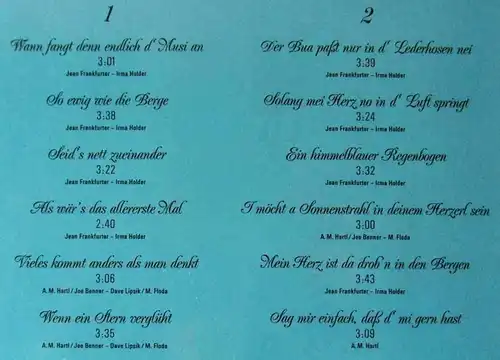 1
Wann fangt denn endlich d' Musi an
3:01
Jean Frankfurter – Irma Holder
So ewig wie die Berge
3:38
Jean Frankfurter – Irma Holder
Seid's nett zueinander
3:22
Jean Frankfurter – Irma Holder
Als wär's das allererste Mal
2:40
Jean Frankfurter – Irma Holder
Vieles kommt anders als man denkt
3:06
A. M. Hartl / Joe Benner – Dave Lipsik / M. Floda
Wenn ein Stern verglüht
3:35
A. M. Hartl / Joe Benner – Dave Lipsik / M. Floda
2
Der Bua paßt nur in d' Lederhosen nei
3:39
Jean Frankfurter – Irma Holder
Solang mei Herz no in d' Luft springt
3:24
Jean Frankfurter – Irma Holder
Ein himmelblauer Regenbogen
3:32
Jean Frankfurter – Irma Holder
I möcht a Sonnenstrahl in deinem Herzerl sein
3:00
A. M. Hartl / Joe Benner – M. Floda
Mein Herz ist da drob'n in den Bergen
3:43
Jean Frankfurter – Irma Holder
Sag mir einfach, daß d' mi gern hast
3:09
A. M. Hartl